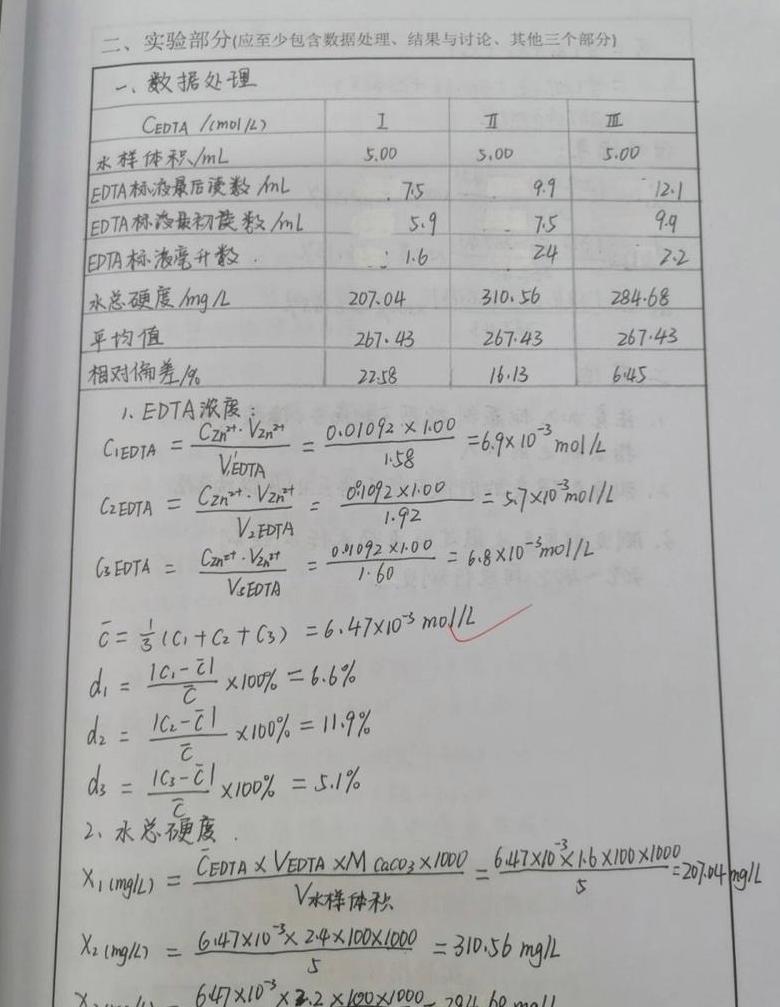 二、实验部分(应至少包含数据处理、结果与讨论、其他三个部分)
一、数据处理
CEDTA /(mol/L) I II III
水样体积/mL 5.00 5.00 5.00
EDTA标液最后读数/mL 7.5 9.9 12.1
EDTA标液最初读数/mL 5.9 7.5 9.9
EDTA标液毫升数 1.6 2.4 2.2
水总硬度/mg/L 207.04 310.56 284.68
平均值 267.43 267.43 267.43
相对偏差/% 22.58 16.13 6.45
1. EDTA浓度:
C1EDTA = CZn²⁺·VZn²⁺ / V1EDTA = 0.01092×1.00 / 1.58 = 6.9×10⁻³ mol/L
C2EDTA = CZn²⁺·VZn²⁺ / V2EDTA = 0.01092×1.00 / 1.92 = 5.7×10⁻³ mol/L
C3EDTA = CZn²⁺·VZn²⁺ / V3EDTA = 0.01092×1.00 / 1.60 = 6.8×10⁻³ mol/L
c̄ = 1/3 (C1+C2+C3) = 6.47×10⁻³ mol/L
d1 = |C1-c̄| / c̄ ×100% = 6.6%
d2 = |C2-c̄| / c̄ ×100% = 11.9%
d3 = |C3-c̄| / c̄ ×100% = 5.1%
2. 水总硬度.
X1(mg/L) = C̄EDTA×VEDTA×MCaCO3×1000 / V水样体积 = 6.47×10⁻³×1.6×100×1000 / 5 = 207.04 mg/L
X2(mg/L) = 6.47×10⁻³×2.4×100×1000 / 5 = 310.56 mg/L
6.47×10⁻³×2.2×100×1000